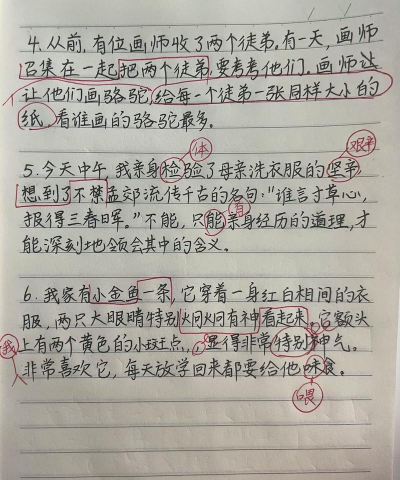 4. 从前，有位画师收了两个徒弟。有一天，画师
召集在一起把两个徒弟，要考考他们。画师让
让他们画骆驼，给每一个徒弟一张同样大小的
纸，看谁画的骆驼最多。
体
艰辛
5. 今天中午，我亲身检验了母亲洗衣服的坚辛
想到了不禁孟郊流传千古的名句："谁言寸草心，
报得三春晖。"不能，只能亲身经历的道理，才
有
能深刻地领会其中的含义。
6. 我家有小金鱼一条，它穿着一身红白相间的衣
服，两只大眼睛特别炯炯有神看起来。它额头
我
上有两个黄色的小斑点，，显得非常特别神气。
非常喜欢它，每天放学回来都要给他味食。
喂